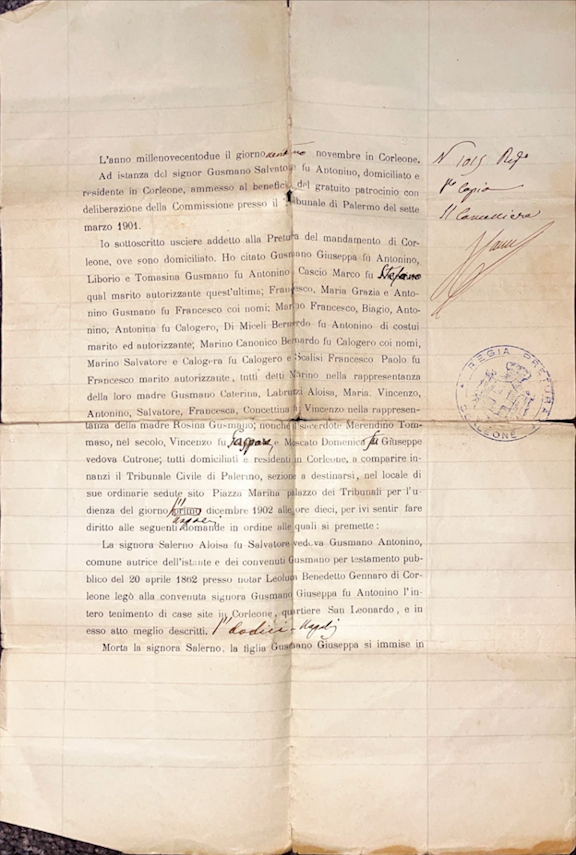 L'anno millenovecentodue il giorno novembre in Corleone.
Ad istanza del signor Gusmano Salvatore fu Antonino, domiciliato e
residente in Corleone, ammesso al beneficio del gratuito patrocinio con
deliberazione della Commissione presso il Tribunale di Palermo del sette
marzo 1901.
Io sottoscritto usciere addetto alla Pretura del mandamento di Cor-
leone, ove sono domiciliato. Ho citato Gusmano Giuseppa fu Antonino,
Liborio e Tomasina Gusmano fu Antonino, Cascio Marco fu Stefano
qual marito autorizzante quest'ultima; Francesco, Maria Grazia e Anto-
nino Gusmano fu Francesco coi nomi; Marino Francesco, Biagio, Anto-
nino, Antonina fu Calogero, Di Miceli Bernardo fu Antonino di costui
marito ed autorizzante; Marino Canonico Bernardo fu Calogero coi nomi,
Marino Salvatore e Calogera fu Calogero e Scalisi Francesco Paolo fu
Francesco marito autorizzante, tutti detti Marino nella rappresentanza
della loro madre Gusmano Caterina, Labruzzi Aloisa, Maria. Vincenzo,
Antonino, Salvatore, Francesca, Concettina di Vincenzo nella rappresen-
tanza della madre Rosina Gusmano; nonchè il sacerdote Merendino Tom-
maso, nel secolo, Vincenzo fu Gaspare, e Moscato Domenica fu Giuseppe
vedova Cutrone; tutti domiciliati e residenti in Corleone, a comparire in-
nanzi il Tribunale Civile di Palermo, sezione a destinarsi, nel locale di
sue ordinarie sedute sito Piazza Marina palazzo dei Tribunali per l'u-
dienza del giorno primo dicembre 1902 alle ore dieci, per ivi sentir fare
diritto alle seguenti domande in ordine alle quali si premette:
La signora Salerno Aloisa fu Salvatore vedova Gusmano Antonino,
comune autrice dell'istante e dei convenuti Gusmano per testamento pub-
blico del 20 aprile 1862 presso notar Leoluca Benedetto Gennaro di Cor-
leone legò alla convenuta signora Gusmano Giuseppa fu Antonino l'in-
tero tenimento di case site in Corleone, quartiere San Leonardo, e in
esso atto meglio descritti. dodici
Morta la signora Salerno, la figlia Gusmano Giuseppa si immise in
N 1015 Reg.
Copia
Il Cancelliere
REGIA PRETURA
CORLEONE